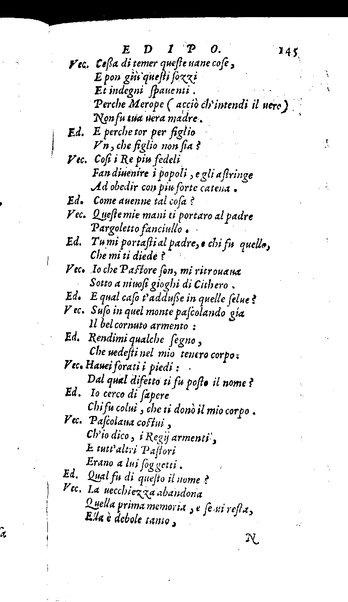 EDIPO. 145
Vec. Ceſſa di temer queſte uane coſe,
E pon giu queſti ſozzi
Et indegni ſpauenti.
Perche Merope (acciò ch'intendi il uero)
Non fu tua uera madre.
Ed. E perche tor per figlio
Vn, che figlio non ſia?
Vec. Coſi i Re piu fedeli
Fan diuenire i popoli, e gli aſtringe
Ad obedir con piu forte catena.
Ed. Come auenne tal coſa?
Vec. Queſte mie mani ti portaro al padre
Pargoletto fanciullo.
Ed. Tu mi portaſti al padre, e chi fu quello,
Che mi ti diede?
Vec. Io che Paſtore ſon, mi ritrouaua
Sotto a niuoſi gioghi di Cithero.
Ed. E qual caſo t'adduſſe in quelle ſelue?
Vec. Suſo in quel monte paſcolando gia
Il bel cornuto armento:
Ed. Rendimi qualche ſegno,
Che uedeſti nel mio tenero corpo:
Vec. Haueui forati i piedi:
Dal qual difetto ti fu poſto il nome?
Ed. Io cerco di ſapere
Chi fu colui, che ti donò il mio corpo.
Vec. Paſcolaua coſtui,
Ch'io dico, i Regij armenti,
E tutt'altri Paſtori
Erano a lui ſoggetti.
Ed. Qual fu di queſto il nome?
Vec. La uecchiezza abandona
Quella prima memoria, e ſe ui reſta,
Ella è debole tanto,
N